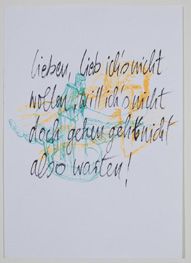 lieben, lieb ich's nicht
wollen, will ich's nicht
doch gehen geht's nicht
also warten!